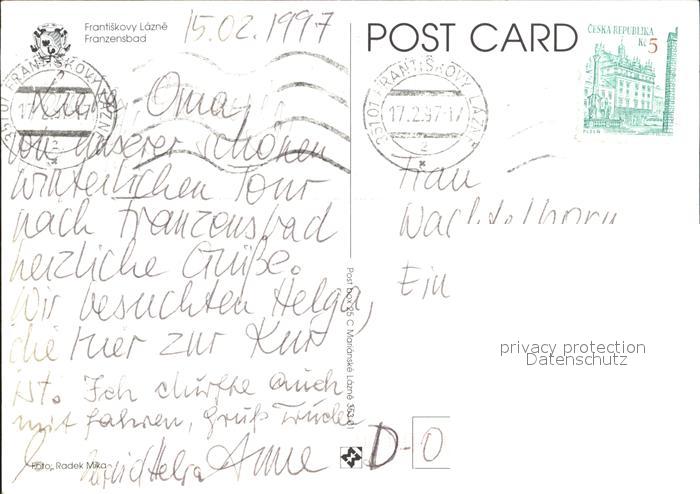 Františkovy Lázně
Franzensbad
15.02.1997
POST CARD
ČESKÁ REPUBLIKA
Kč 5
PLZEŇ
351 01 FRANTIŠKOVY LÁZNĚ
17.
2
351 01 FRANTIŠKOVY LÁZNĚ
17.2.97-17
2
Oma,
von unserer schönen
winterlichen Tour
nach Franzensbad
herzliche Grüße.
Wir besuchten Helga,
die hier zur Kur
ist. Ich durfte auch
mitfahren, Gruß
Helga Anne
Frau
Ein
D-0
privacy protection
Datenschutz
Post box 25 C Mariánské Lázně 353 01
Foto: Radek Mika